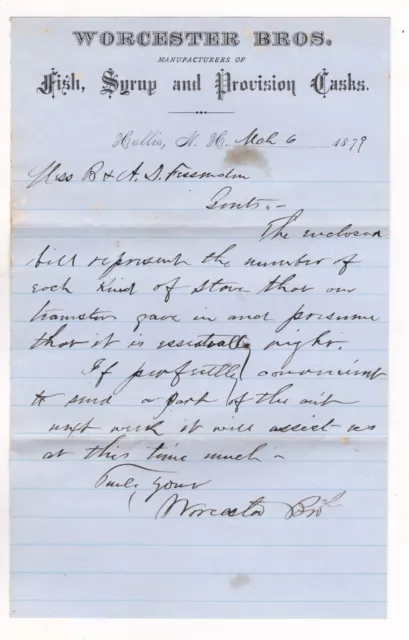 WORCESTER BROS.
MANUFACTURERS OF
Fish, Syrup and Provision Casks.
Hollis, N. H. Mch 6 1879
Mess B & A. D. Fessenden
Gents.-
The enclosed
bill represent the number of
each kind of Stave that our
teamsters gave in and presume
that it is essentially right.
If perfectly convenient
to send a part of the amt
next week it will assist us
at this time much -
Truly yours
Worcester Bros